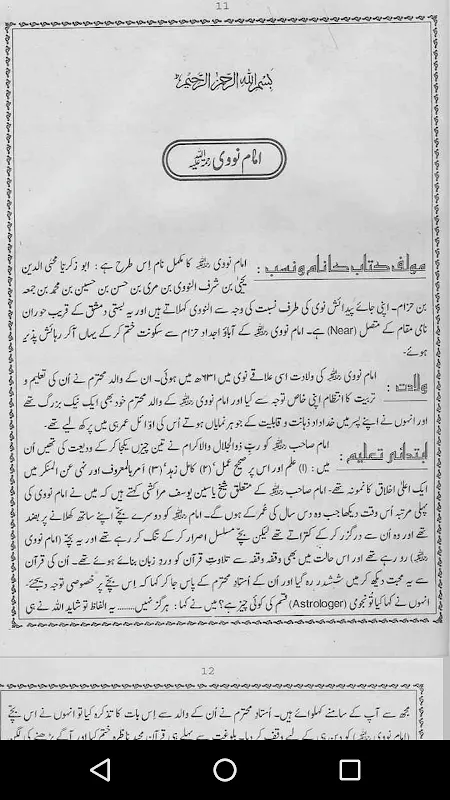 11
بسم اللہ الرحمٰن الرحیم
امام نووی رحمۃ اللہ علیہ
مولف کتاب کا نام و نسب : امام نووی رحمۃ اللہ علیہ کا مکمل نام اِس طرح ہے : ابو زکریا محی الدین
یحییٰ بن شرف النووی بن مری بن حسن بن حسین بن محمد بن جمعہ
بن حزام۔ اپنی جائے پیدائش نوی کی طرف نسبت کی وجہ سے النووی کہلاتے ہیں اور یہ بستی دمشق کے قریب حوران
نامی مقام کے متصل (Near) ہے۔ امام نووی رحمۃ اللہ علیہ کے آباؤ اجداد حزام سے سکونت ختم کر کے یہاں آ کر رہائش پذیر
ہوئے۔
ولادت : امام نووی رحمۃ اللہ علیہ کی ولادت اسی علاقے نوی میں ۶۳۱ھ میں ہوئی۔ ان کے والد محترم نے اُن کی تعلیم و
تربیت کا انتظام اپنی خاص توجہ سے کیا اور امام نووی رحمۃ اللہ علیہ کے والد محترم خود بھی ایک نیک بزرگ تھے
اور انہوں نے اپنے پسر میں خداداد ذہانت و قابلیت کے جوہر نمایاں ہوتے اُس کی اوائل عمری میں پرکھ لیے تھے۔
ابتدائی تعلیم : امام صاحب رحمۃ اللہ علیہ کو ربّ ذوالجلال والاکرام نے تین چیزیں یکجا کر کے ودیعت کی تھیں اُن
میں : (۱) علم اور اس پر صحیح عمل‘ (۲) کامل زہد‘ (۳) امر بالمعروف اور نہی عن المنکر میں
ایک اعلیٰ اخلاق کا نمونہ تھے۔ امام صاحب رحمۃ اللہ علیہ کے متعلق شیخ یاسین یوسف مراکشی کہتے ہیں کہ میں نے امام نووی کی
پہلی مرتبہ اُس وقت دیکھا جب وہ دس سال کی عمر کے ہوں گے۔ امام رحمۃ اللہ علیہ کو دوسرے بچّے اپنے ساتھ کھلانے پر بضد
تھے اور وہ اُن سے درگزر کر کے کتراتے تھے لیکن بچّے مسلسل اصرار کر کے تنگ کر رہے تھے اور یہ بچّہ (امام نووی
رحمۃ اللہ علیہ) رو رہے تھے اور اس حالت میں بھی وقفہ وقفہ سے تلاوتِ قرآن کو وردِ زبان بنائے ہوئے تھے۔ اُن کی قرآن
سے یہ محبت دیکھ کر میں ششدر رہ گیا اور اُن کے اُستادِ محترم کے پاس جا کر کہا کہ اِس بچّے پر خصوصی توجہ دیجئے۔
انہوں نے کہا کیا تو نجومی (Astrologer) قسم کی کوئی چیز ہے؟ میں نے کہا : ہرگز نہیں ....... یہ الفاظ تو شاید اللہ نے ہی
12
مجھ سے آپ کے سامنے کہلوائے ہیں۔ اُستادِ محترم نے اُن کے والد سے اِس بات کا تذکرہ کیا تو انہوں نے اس بچّے
(امام نووی رحمۃ اللہ علیہ) کو دین ہی کے لیے وقف کر دیا۔ بلوغت سے پہلے ہی قرآن مجید ناظرہ ختم کیا اور آگے پڑھنے کی لگن